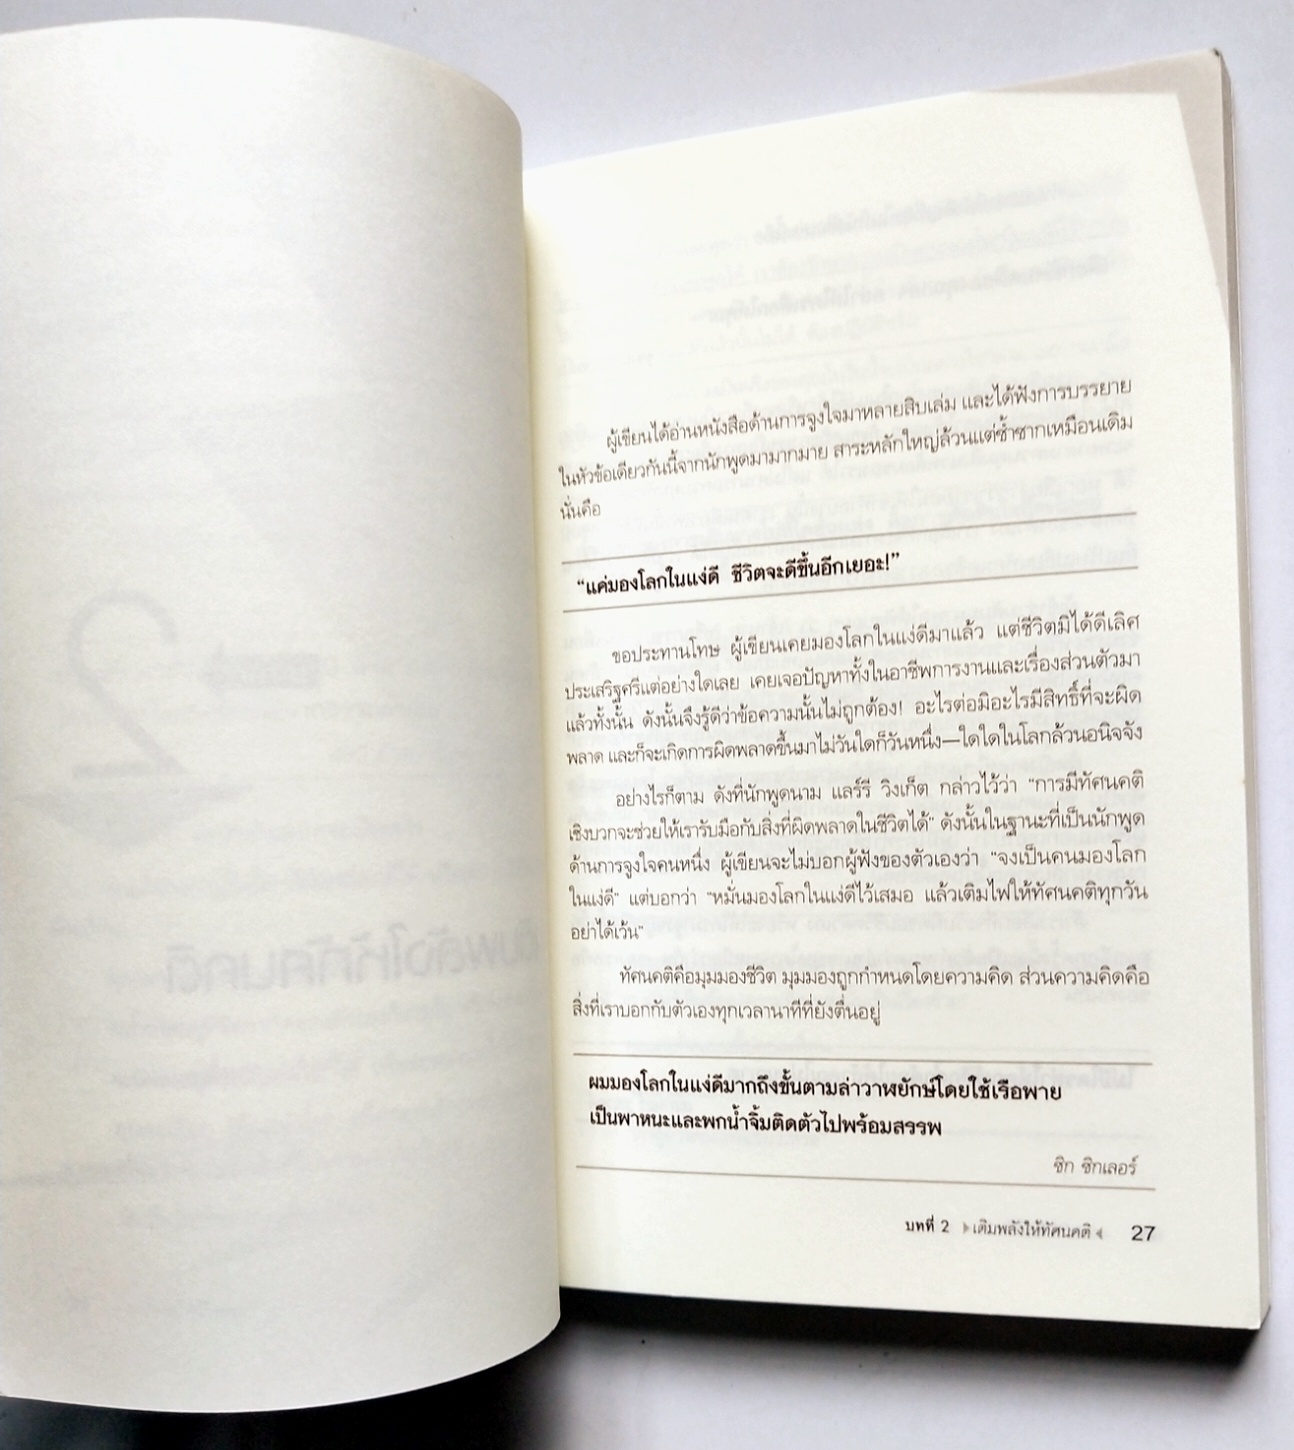 ผู้เขียนได้อ่านหนังสือด้านการจูงใจมาหลายสิบเล่ม และได้ฟังการบรรยาย
ในหัวข้อเดียวกันนี้จากนักพูดมามากมาย สาระหลักใหญ่ล้วนแต่ซ้ำซากเหมือนเดิม
นั่นคือ
“แค่มองโลกในแง่ดี ชีวิตจะดีขึ้นอีกเยอะ!”
ขอประทานโทษ ผู้เขียนเคยมองโลกในแง่ดีมาแล้ว แต่ชีวิตมิได้ดีเลิศ
ประเสริฐศรีแต่อย่างใดเลย เคยเจอปัญหาทั้งในอาชีพการงานและเรื่องส่วนตัวมา
แล้วทั้งนั้น ดังนั้นจึงรู้ดีว่าข้อความนั้นไม่ถูกต้อง! อะไรต่อมิอะไรมีสิทธิ์ที่จะผิด
พลาด และก็จะเกิดการผิดพลาดขึ้นมาไม่วันใดก็วันหนึ่ง—ใดใดในโลกล้วนอนิจจัง
อย่างไรก็ตาม ดังที่นักพูดนาม แลร์รี วิงเก็ต กล่าวไว้ว่า “การมีทัศนคติ
เชิงบวกจะช่วยให้เรารับมือกับสิ่งที่ผิดพลาดในชีวิตได้” ดังนั้นในฐานะที่เป็นนักพูด
ด้านการจูงใจคนหนึ่ง ผู้เขียนจะไม่บอกผู้ฟังของตัวเองว่า “จงเป็นคนมองโลก
ในแง่ดี” แต่บอกว่า “หมั่นมองโลกในแง่ดีไว้เสมอ แล้วเติมไฟให้ทัศนคติทุกวัน
อย่าได้เว้น”
ทัศนคติคือมุมมองชีวิต มุมมองถูกกำหนดโดยความคิด ส่วนความคิดคือ
สิ่งที่เราบอกกับตัวเองทุกเวลานาทีที่ยังตื่นอยู่
ผมมองโลกในแง่ดีมากถึงขั้นตามล่าวาฬยักษ์โดยใช้เรือพาย
เป็นพาหนะและพกน้ำจิ้มติดตัวไปพร้อมสรรพ
ซิก ซิกเลอร์
บทที่ 2 เติมพลังให้ทัศนคติ 27